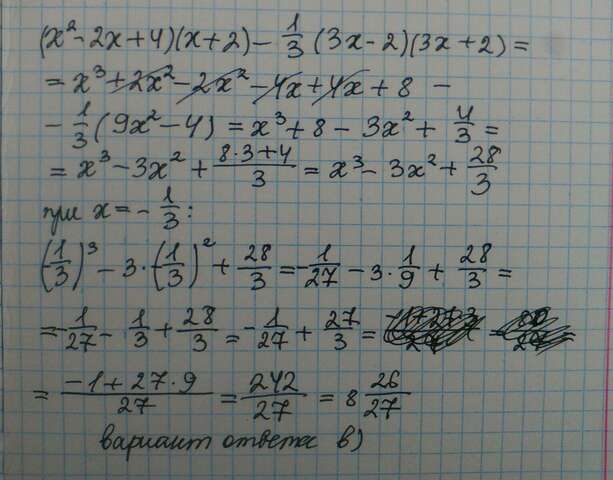 (x² - 2x + 4)(x + 2) - 1/3 (3x - 2)(3x + 2) =
= x³ + 2x² - 2x² - 4x + 4x + 8 -
- 1/3 (9x² - 4) = x³ + 8 - 3x² + 4/3 =
= x³ - 3x² + (8·3+4)/3 = x³ - 3x² + 28/3
при x = - 1/3 :
(1/3)³ - 3·(1/3)² + 28/3 = - 1/27 - 3·1/9 + 28/3 =
= - 1/27 - 1/3 + 28/3 = - 1/27 + 27/3 =
= (-1 + 27·9)/27 = 242/27 = 8 26/27
вариант ответа в)